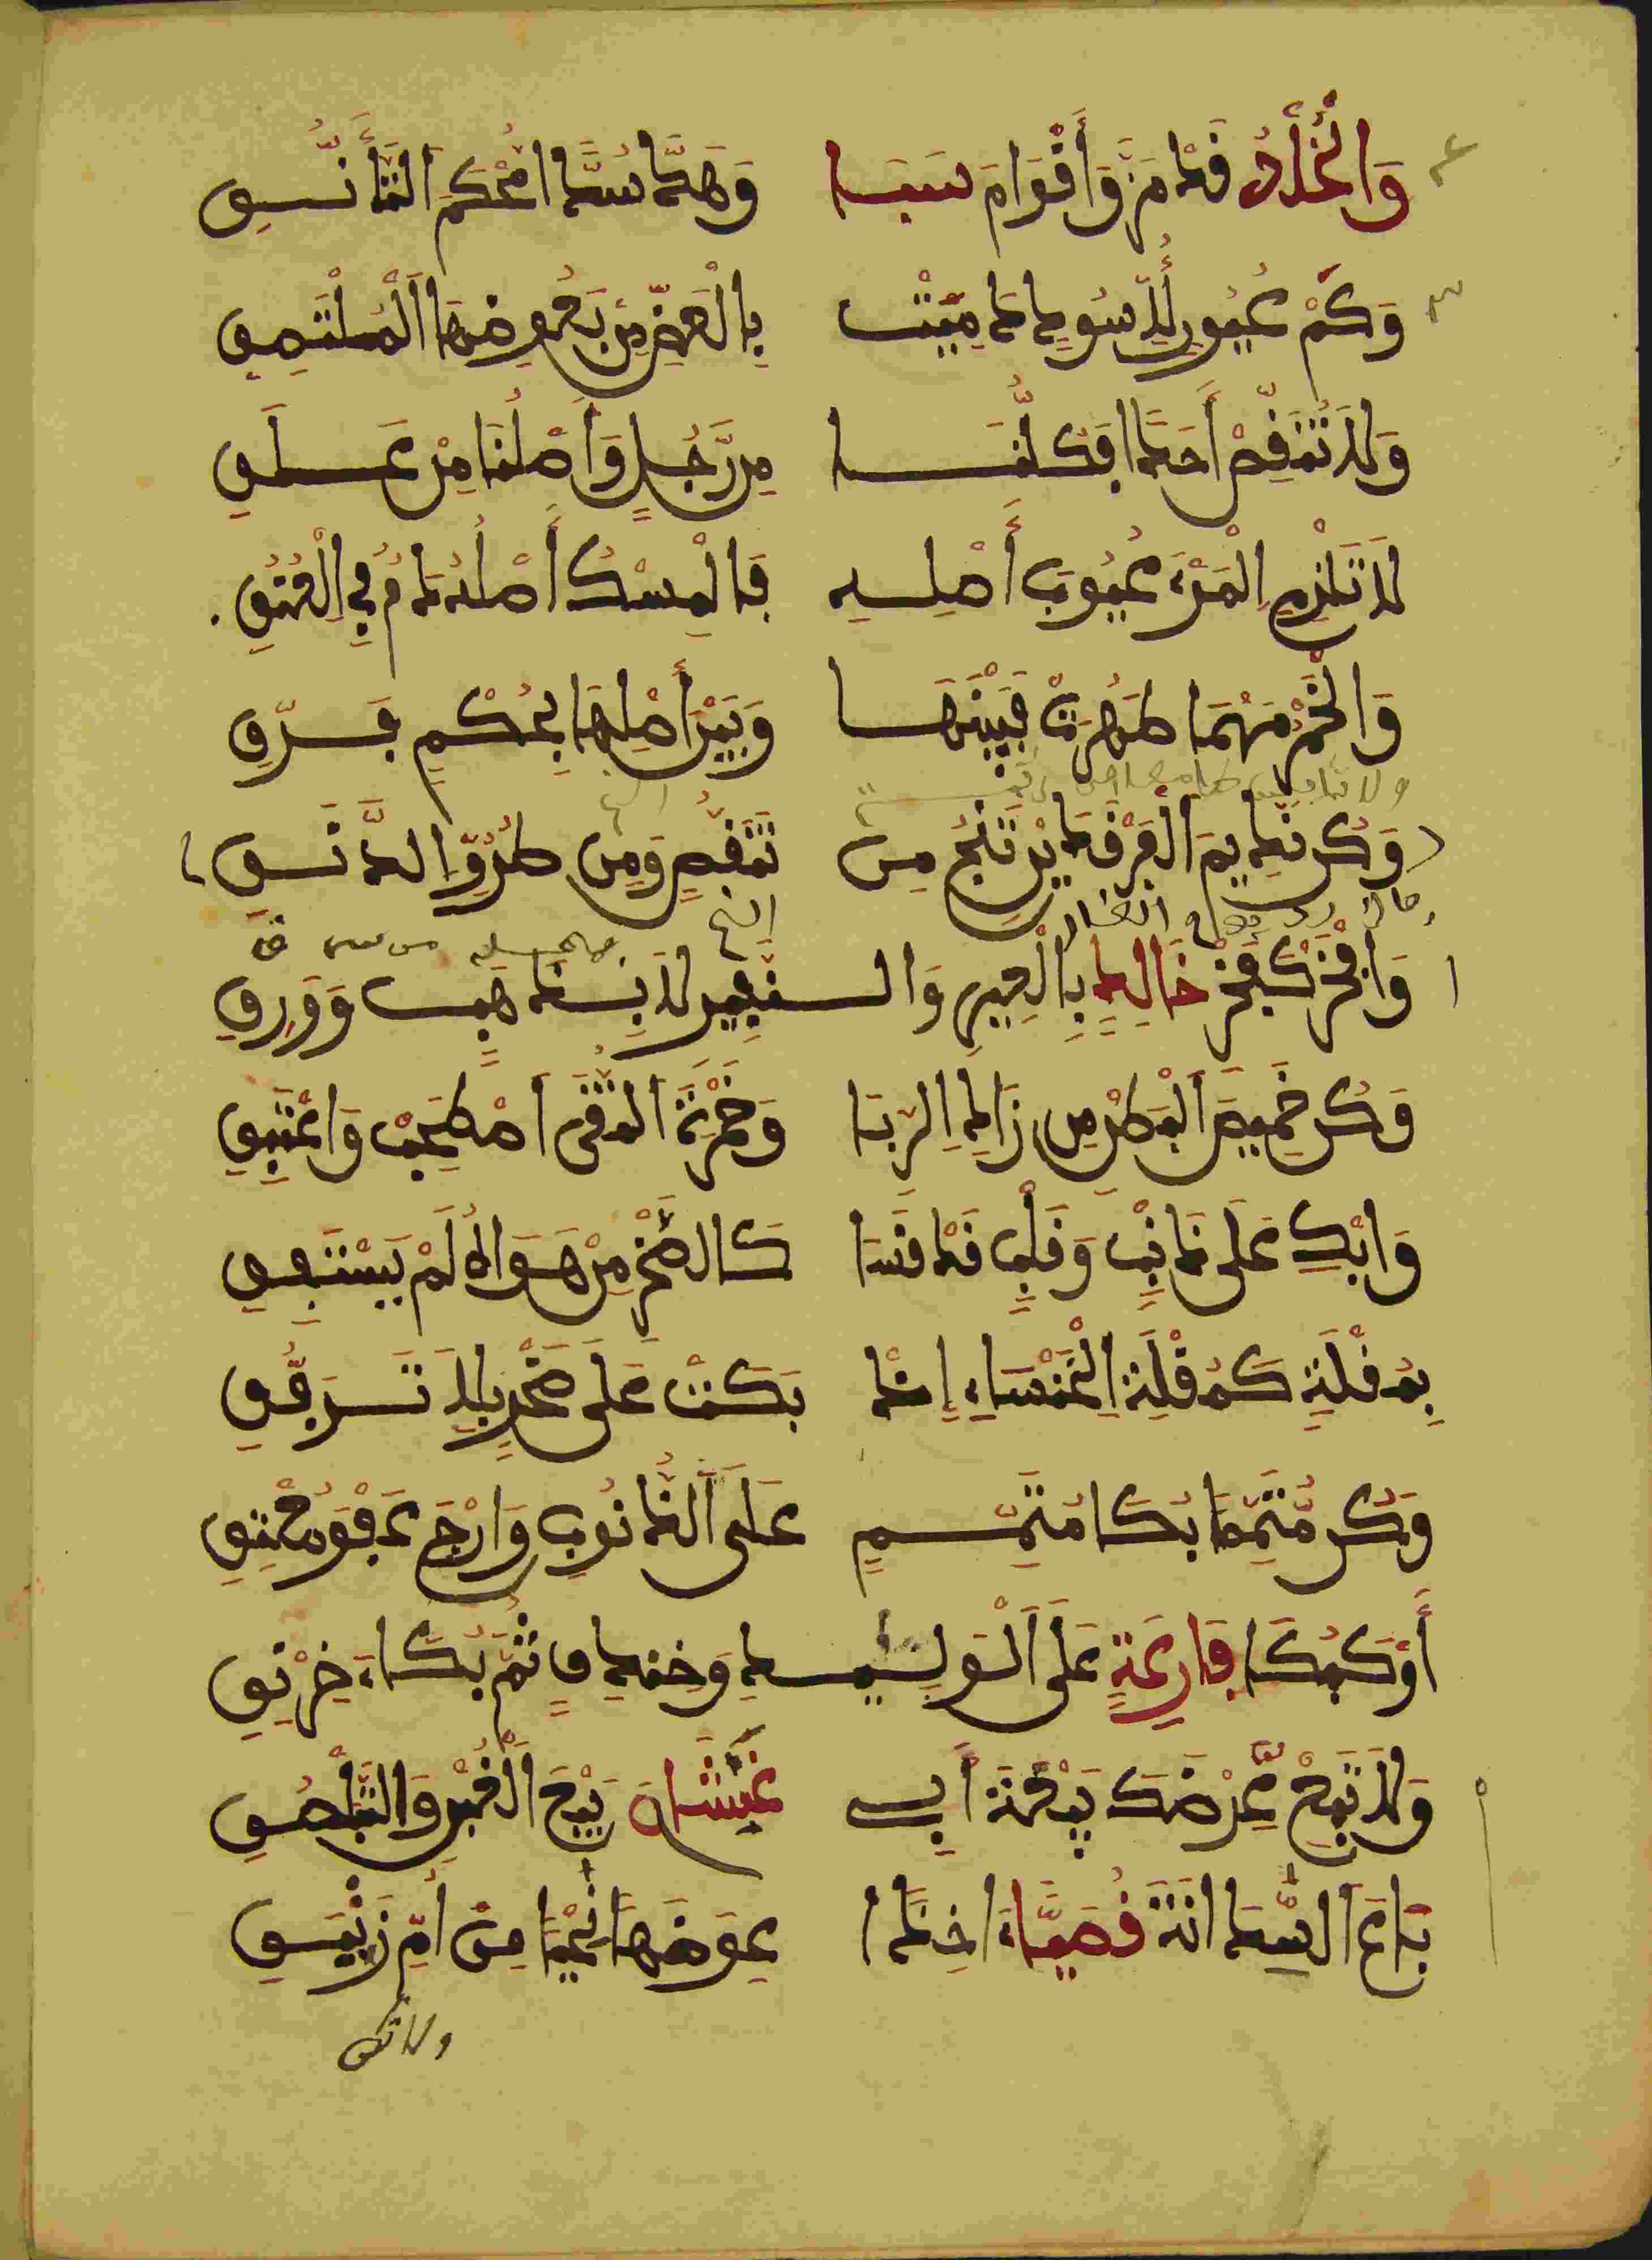 وَالْخُلْدُ قَدْ مَزَّقَ أَقْوَامَ سَبَا وَهَدَّ سُدًّا مُحْكَمَ التَّأَنُّقِ
وَكَمْ عُيُونٍ لِأُسُودٍ دَمِيَتْ بِالْعَضِّ مِنْ بَعُوضِهَا الْمُلْتَصِقِ
وَلَا تُنَقِّصْ أَحَدًا فَكُلُّنَا مِن رَّجُلٍ وَأَصْلُنَا مِنْ عَلَقِ
لَا تُلْزِمِ الْمَرْءَ عُيُوبَ أَصْلِهِ فَالْمِسْكُ أَصْلُهُ دَمٌ فِي الْعُنُقِ
وَالْخَمْرُ مَهْمَا طَهُرَتْ فَبَيْنَهَا وَبَيْنَ أَصْلِهَا بِحُكْمٍ فَرِّقِ
وَكُن نَدِيمَ الْفَرْقَدَيْنِ تَنْجُ مِن تَنَغُّصٍ وَمِن طُرُوِّ الرَّنَقِ
وَافْخَرْ كَفَخْرِ خَالِدٍ بِالْعِيرِ وَالنَّفِيرِ لَا بِذَهَبٍ وَوَرِقِ
وَكُن خَمِيصَ الْبَطْنِ مِن زَادِ الرِّبَا وَخَمْرَةَ التُّقَى اصْطَبِحْ وَاغْتَبِقِ
وَابْكِ عَلَى ذَنْبٍ وَقَلْبٍ قَدْ قَسَا كَالصَّخْرِ مِنْ هَوَاهُ لَمْ يَسْتَفِقِ
بِمُقْلَةٍ كَمُقْلَةِ الْخَنْسَاءِ إِذْ بَكَتْ عَلَى صَخْرٍ بِلَا تَرَفُّقِ
وَكُن مُتَمِّمًا بُكَا مُتَمِّمٍ عَلَى الذُّنُوبِ وَارْجُ عَفْوَ مُعْتِقِ
أَوْ كَبُكَا فَارِعَةٍ عَلَى الْوَلِيدِ وَخِفَافٍ ثُمَّ بُكَاءَ خِرْنِقِ
وَلَا تَبِعْ عِرْضَكَ بَيْعَةَ أَبِي غَبْشَانَ بَيْعَ الْغُبْنِ وَالتَّبَلْصُقِ
بَاعَ السِّدَانَةَ قُصَيًّا آخِذًا عِوَضَهَا نِحْيًا مِنْ أُمِّ زَنْبَقِ